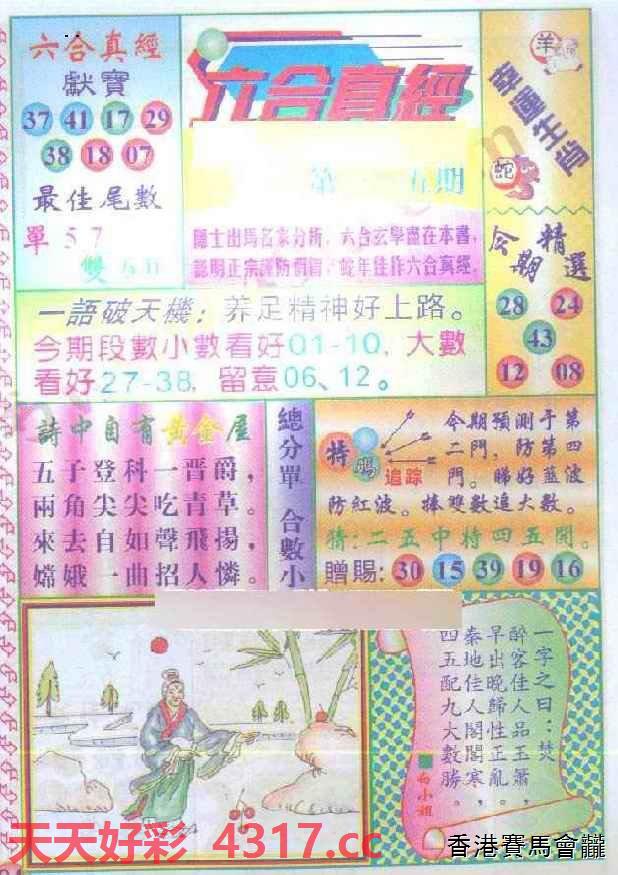 六合真經
獻寶
37 41 17 29
38 18 07
最佳尾數
單 5 7
雙
六合真經
第 五期
隱士出馬名家分析，六合玄學盡在本書，
認明正宗謹防假冒，蛇年佳作六合真經。
羊
幸運生肖
蛇
今期精選
28 24
43
12 08
一語破天機：养足精神好上路。
今期段數小數看好01-10，大數
看好27-38，留意06、12。
詩中自有黃金屋
五子登科一晋爵，
兩角尖尖吃青草。
來去自如聲飛揚，
嫦娥一曲招人憐。
總分單 合數小
特碼
追踪
今期預測于第
二門，防第四
門。睇好藍波
防紅波。捧雙數追大數。
猜：二五中特四五開。
贈賜：30 15 39 19 16
一字之曰：焚
醉客佳人品玉簫
早出晚歸性正亂
秦地佳人閣閣寒
四五配九大數勝
白小姐
天天好彩 4317.cc
香港賽馬會